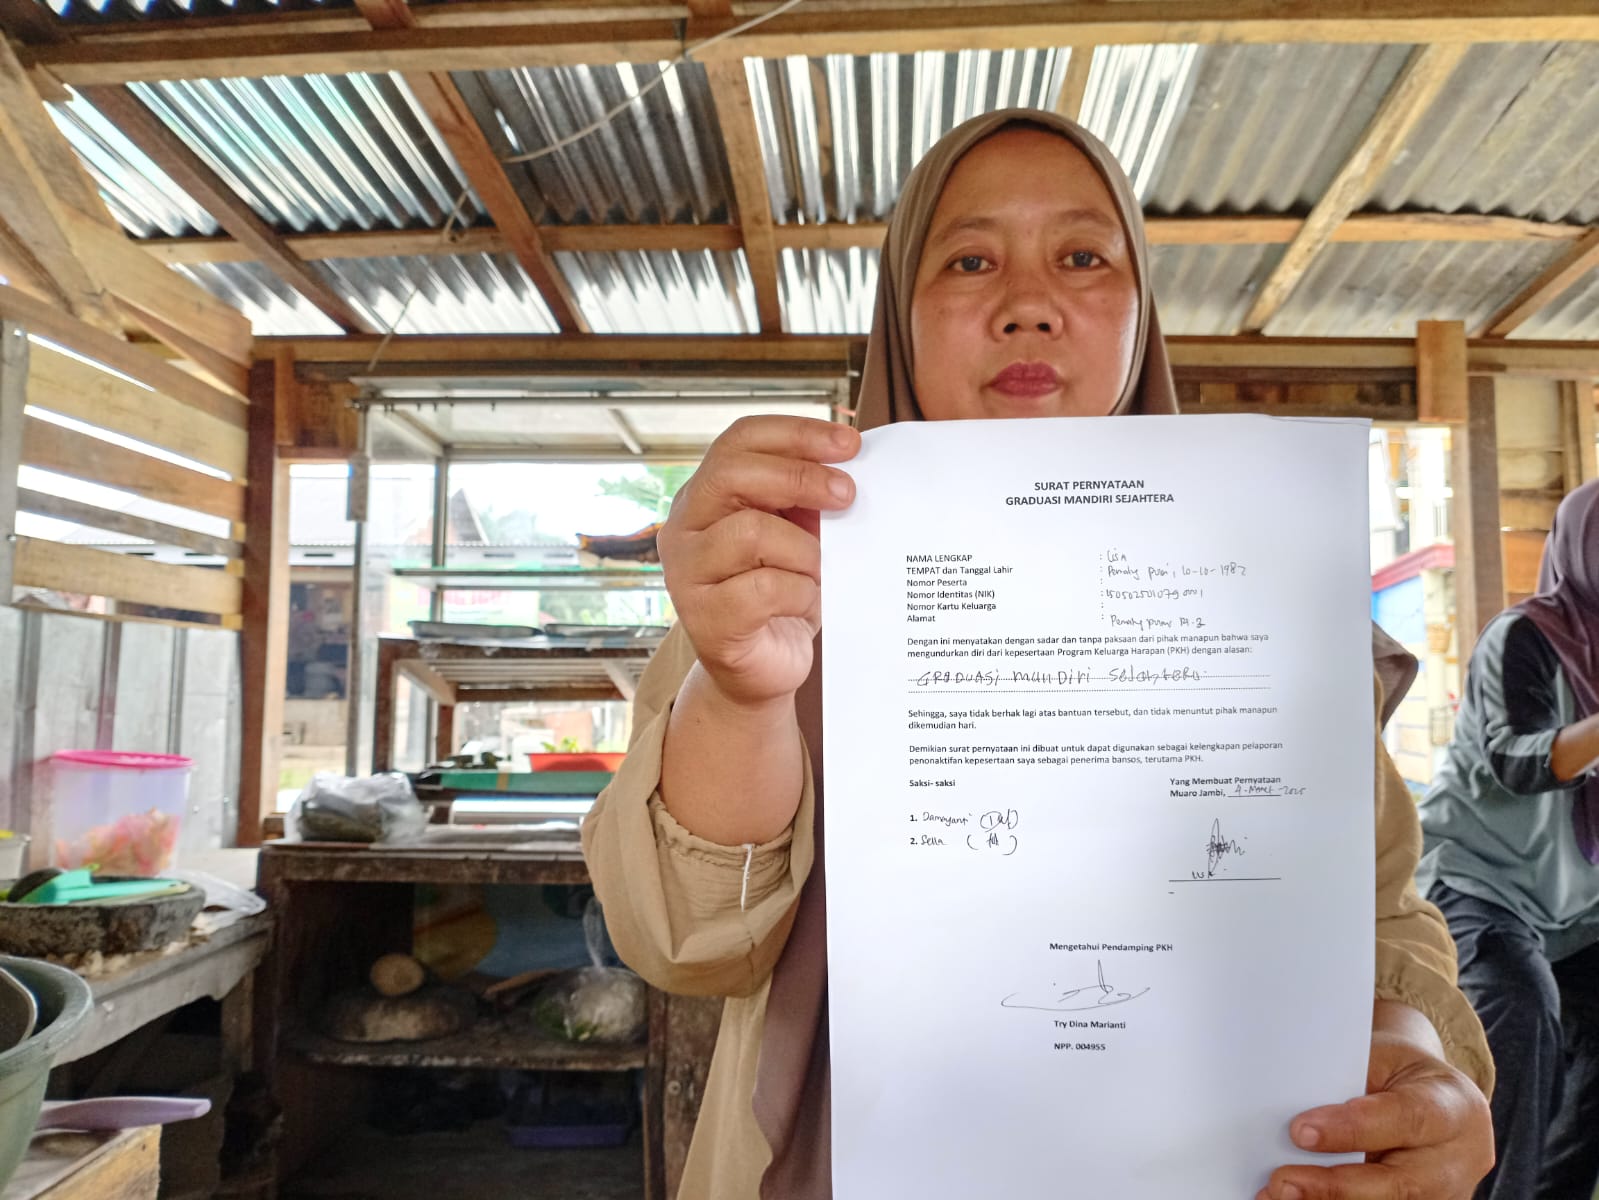 SURAT PERNYATAAN
GRADUASI MANDIRI SEJAHTERA
NAMA LENGKAP : Lisa
TEMPAT dan Tanggal Lahir : 10-10-1982
Nomor Peserta :
Nomor Identitas (NIK) :
Nomor Kartu Keluarga :
Alamat :
Dengan ini menyatakan dengan sadar dan tanpa paksaan dari pihak manapun bahwa saya
mengundurkan diri dari kepesertaan Program Keluarga Harapan (PKH) dengan alasan:
GRADUASI MANDIRI Sejahtera
Sehingga, saya tidak berhak lagi atas bantuan tersebut, dan tidak menuntut pihak manapun
dikemudian hari.
Demikian surat pernyataan ini dibuat untuk dapat digunakan sebagai kelengkapan pelaporan
penonaktifan kepesertaan saya sebagai penerima bansos, terutama PKH.
Saksi- saksi
Yang Membuat Pernyataan
Muaro Jambi, 4-Maret-2025
1. Damayanti
2. Sella
Mengetahui Pendamping PKH
Try Dina Marianti
NPP. 004955